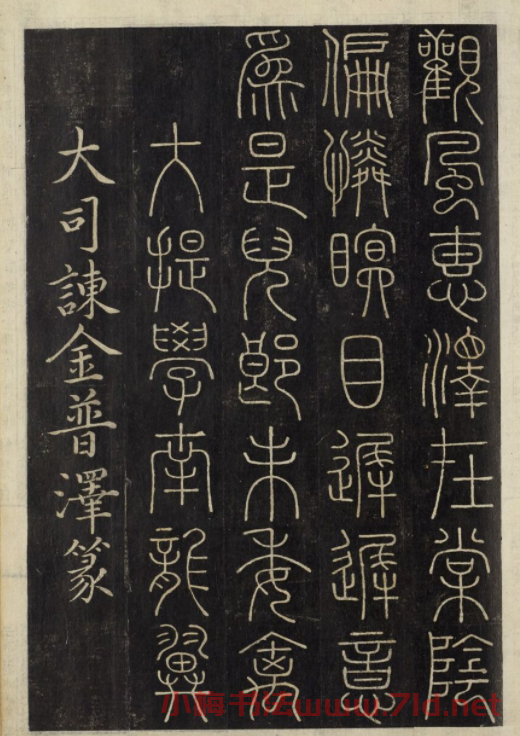 觀風惠澤在棠陰
偏憐瞑目遲遲意
爲是兒郎未委禽
大提學南龍翼
大司諫金普澤篆
小梅书法www.7ld.net